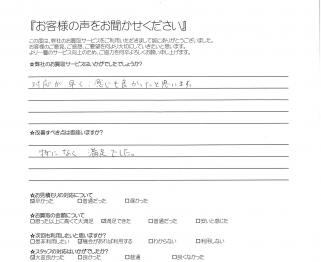 『お客様の声をお聞かせください』
この度は、弊社のお買取サービスをご利用いただきまして誠にありがとうございました。
お客様のご意見、ご感想、ご要望を何より大切にしていきたいと思います。
より一層のサービス向上のため、ご協力を何卒よろしくお願い申し上げます。
★弊社のお買取サービスはいかがでしたでしょうか?
対応が早く 感じも良かったと思います。
★改善すべき点は御座いますか?
特になく 満足でした。
★お見積もりの対応について
☑早かった □普通だった □遅かった
★お買取の金額について
□思った以上に高くて大満足 ☑満足できた □普通だった □安いと感じた
★次回も利用したいと思いますか?
□是非利用したい ☑機会があれば利用する □わからない □利用しない
★スタッフの対応はいかがでしたか?
☑大変良かった □良かった □普通 □良くなかった